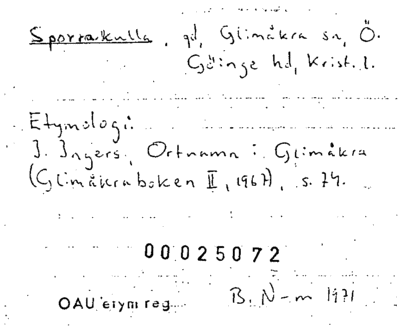 Sporrakulla, gd, Glimåkra sn, Ö.
Göinge hd, Krist. l.
Etymologi:
I. Ingers, Ortnamn i Glimåkra
(Glimåkraboken II, 1967), s. 74.
00025072
OAU etym reg.
B. N-m 1971